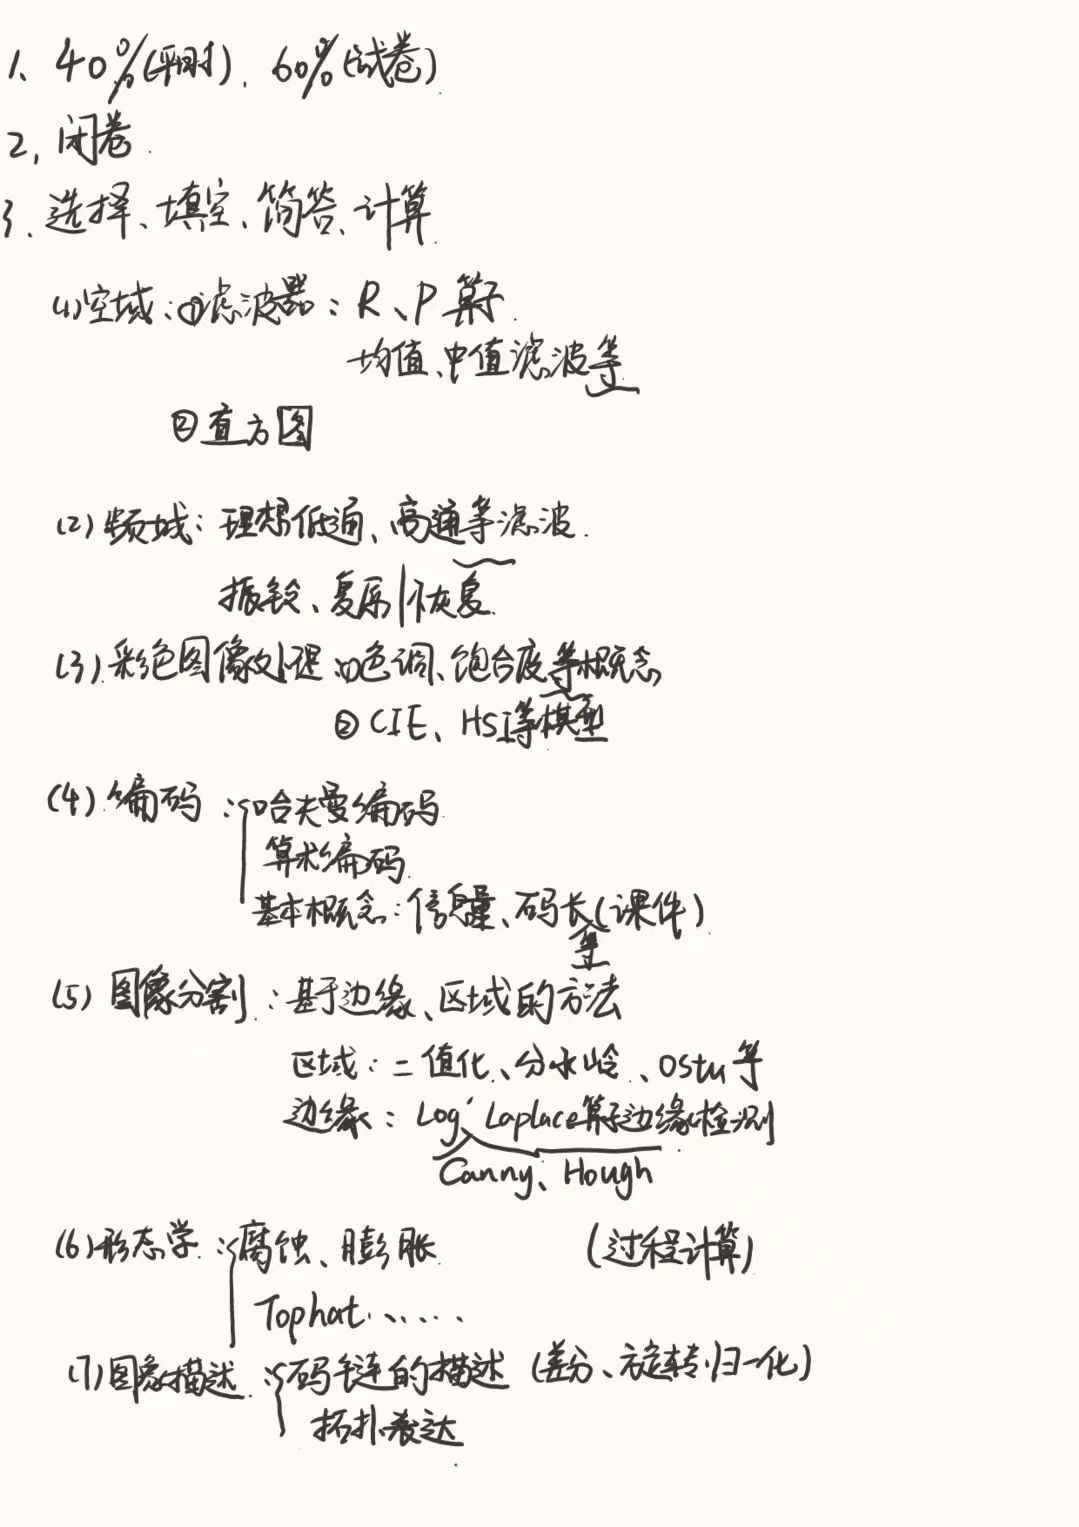 1、40%(平时)、60%(试卷)
2、闭卷.
3、选择、填空、简答、计算.
(1)空域:①滤波器:R、P算子.
均值、中值滤波等
②直方图
(2)频域:理想低通、高通等滤波.
振铃、复原|恢复.
(3)彩色图像处理①色调、饱合度等概念
②CIE、HSI等模型
(4)编码:哈夫曼编码
算术编码.
基本概念:信息量、码长(课件)
等
(5)图像分割:基于边缘、区域的方法
区域:二值化、分水岭、Ostu等
边缘:Log、Laplace算子边缘检测
Canny、Hough
(6)形态学:腐蚀、膨胀 (过程计算)
Tophat......
(7)图象描述:码链的描述(差分、旋转归一化)
拓扑表达